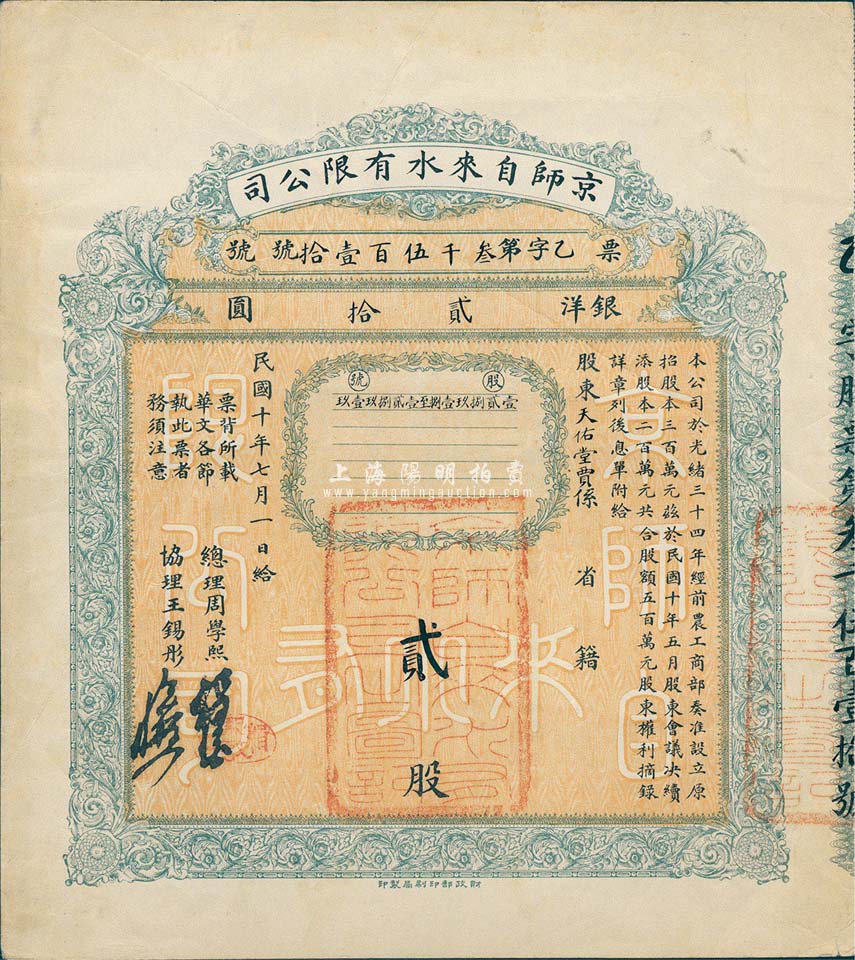 京師自來水有限公司
票乙字第叁千伍百壹拾號號
銀洋貳拾圓
本公司於光緒三十四年經前農工商部奏准設立原
招股本三百萬元茲於民國十年五月股東會議決續
添股本二百萬元共合股額五百萬元股東權利摘錄
詳章列後息單附給
股東天佑堂賈係 省 籍
股
號
壹貳捌玖壹捌至壹貳捌玖壹玖
貳股
民國十年七月一日給
總理周學熙
協理王錫彤
票背所載
華文各節
執此票者
務須注意
京師自來水有限公司
上海陽明拍賣
www.yangmingauction.com
財政部印刷局製印